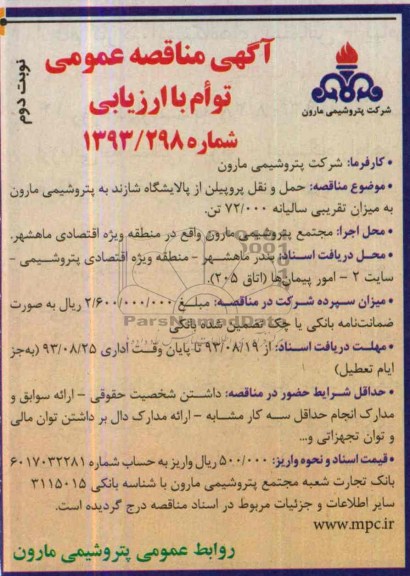 آگهی مناقصه عمومی
توأم با ارزیابی
شماره ۱۳۹۳/۲۹۸
نوبت دوم
شرکت پتروشیمی مارون
•کارفرما: شرکت پتروشیمی مارون
•موضوع مناقصه: حمل و نقل پروپیلن از پالایشگاه شازند به پتروشیمی مارون
به میزان تقریبی سالیانه ۷۲/۰۰۰ تن.
•محل اجرا: مجتمع پتروشیمی مارون واقع در منطقه ویژه اقتصادی ماهشهر.
•محل دریافت اسناد: بندر ماهشهر - منطقه ویژه اقتصادی پتروشیمی -
سایت ۲ - امور پیمان‌ها (اتاق ۲۰۵).
•میزان سپرده شرکت در مناقصه: مبلغ ۲/۶۰۰/۰۰۰/۰۰۰ ریال به صورت
ضمانت‌نامه بانکی یا چک تضمین شده بانکی
ParsNamadData
•مهلت دریافت اسناد: از ۹۳/۰۸/۱۹ تا پایان وقت اداری ۹۳/۰۸/۲۵ (به‌جز
ایام تعطیل)
•حداقل شرایط حضور در مناقصه: داشتن شخصیت حقوقی - ارائه سوابق و
مدارک انجام حداقل سه کار مشابه - ارائه مدارک دال بر داشتن توان مالی
و توان تجهزاتی و...
•قیمت اسناد و نحوه واریز: ۵۰۰/۰۰۰ ریال واریز به حساب شماره ۶۰۱۷۰۳۲۲۸۱
بانک تجارت شعبه مجتمع پتروشیمی مارون با شناسه بانکی ۳۱۱۵۰۱۵
سایر اطلاعات و جزئیات مربوط در اسناد مناقصه درج گردیده است.
www.mpc.ir
روابط عمومی پتروشیمی مارون